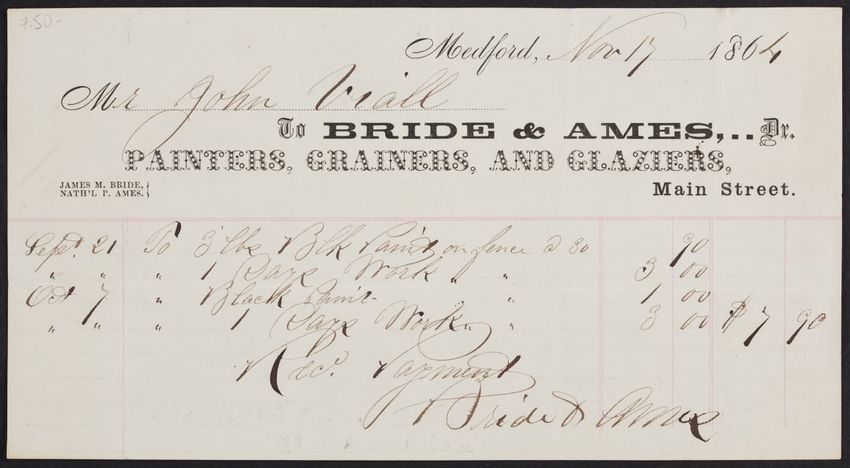 7.50-
Medford, Nov 17 1864
Mr John Viall
To BRIDE & AMES,.. Dr.
PAINTERS, GRAINERS, AND GLAZIERS,
JAMES M. BRIDE,
NATH'L P. AMES.
Main Street.
Sept. 21 To 3 lbs Blk Paint on fence @ 30 90
" " " 1 Days Work " " 3 00
Oct 7 " Black Paint " 1 00
" " " 1 Days Work " " 3 00 $7 90
Recd. Payment
Bride & Ames